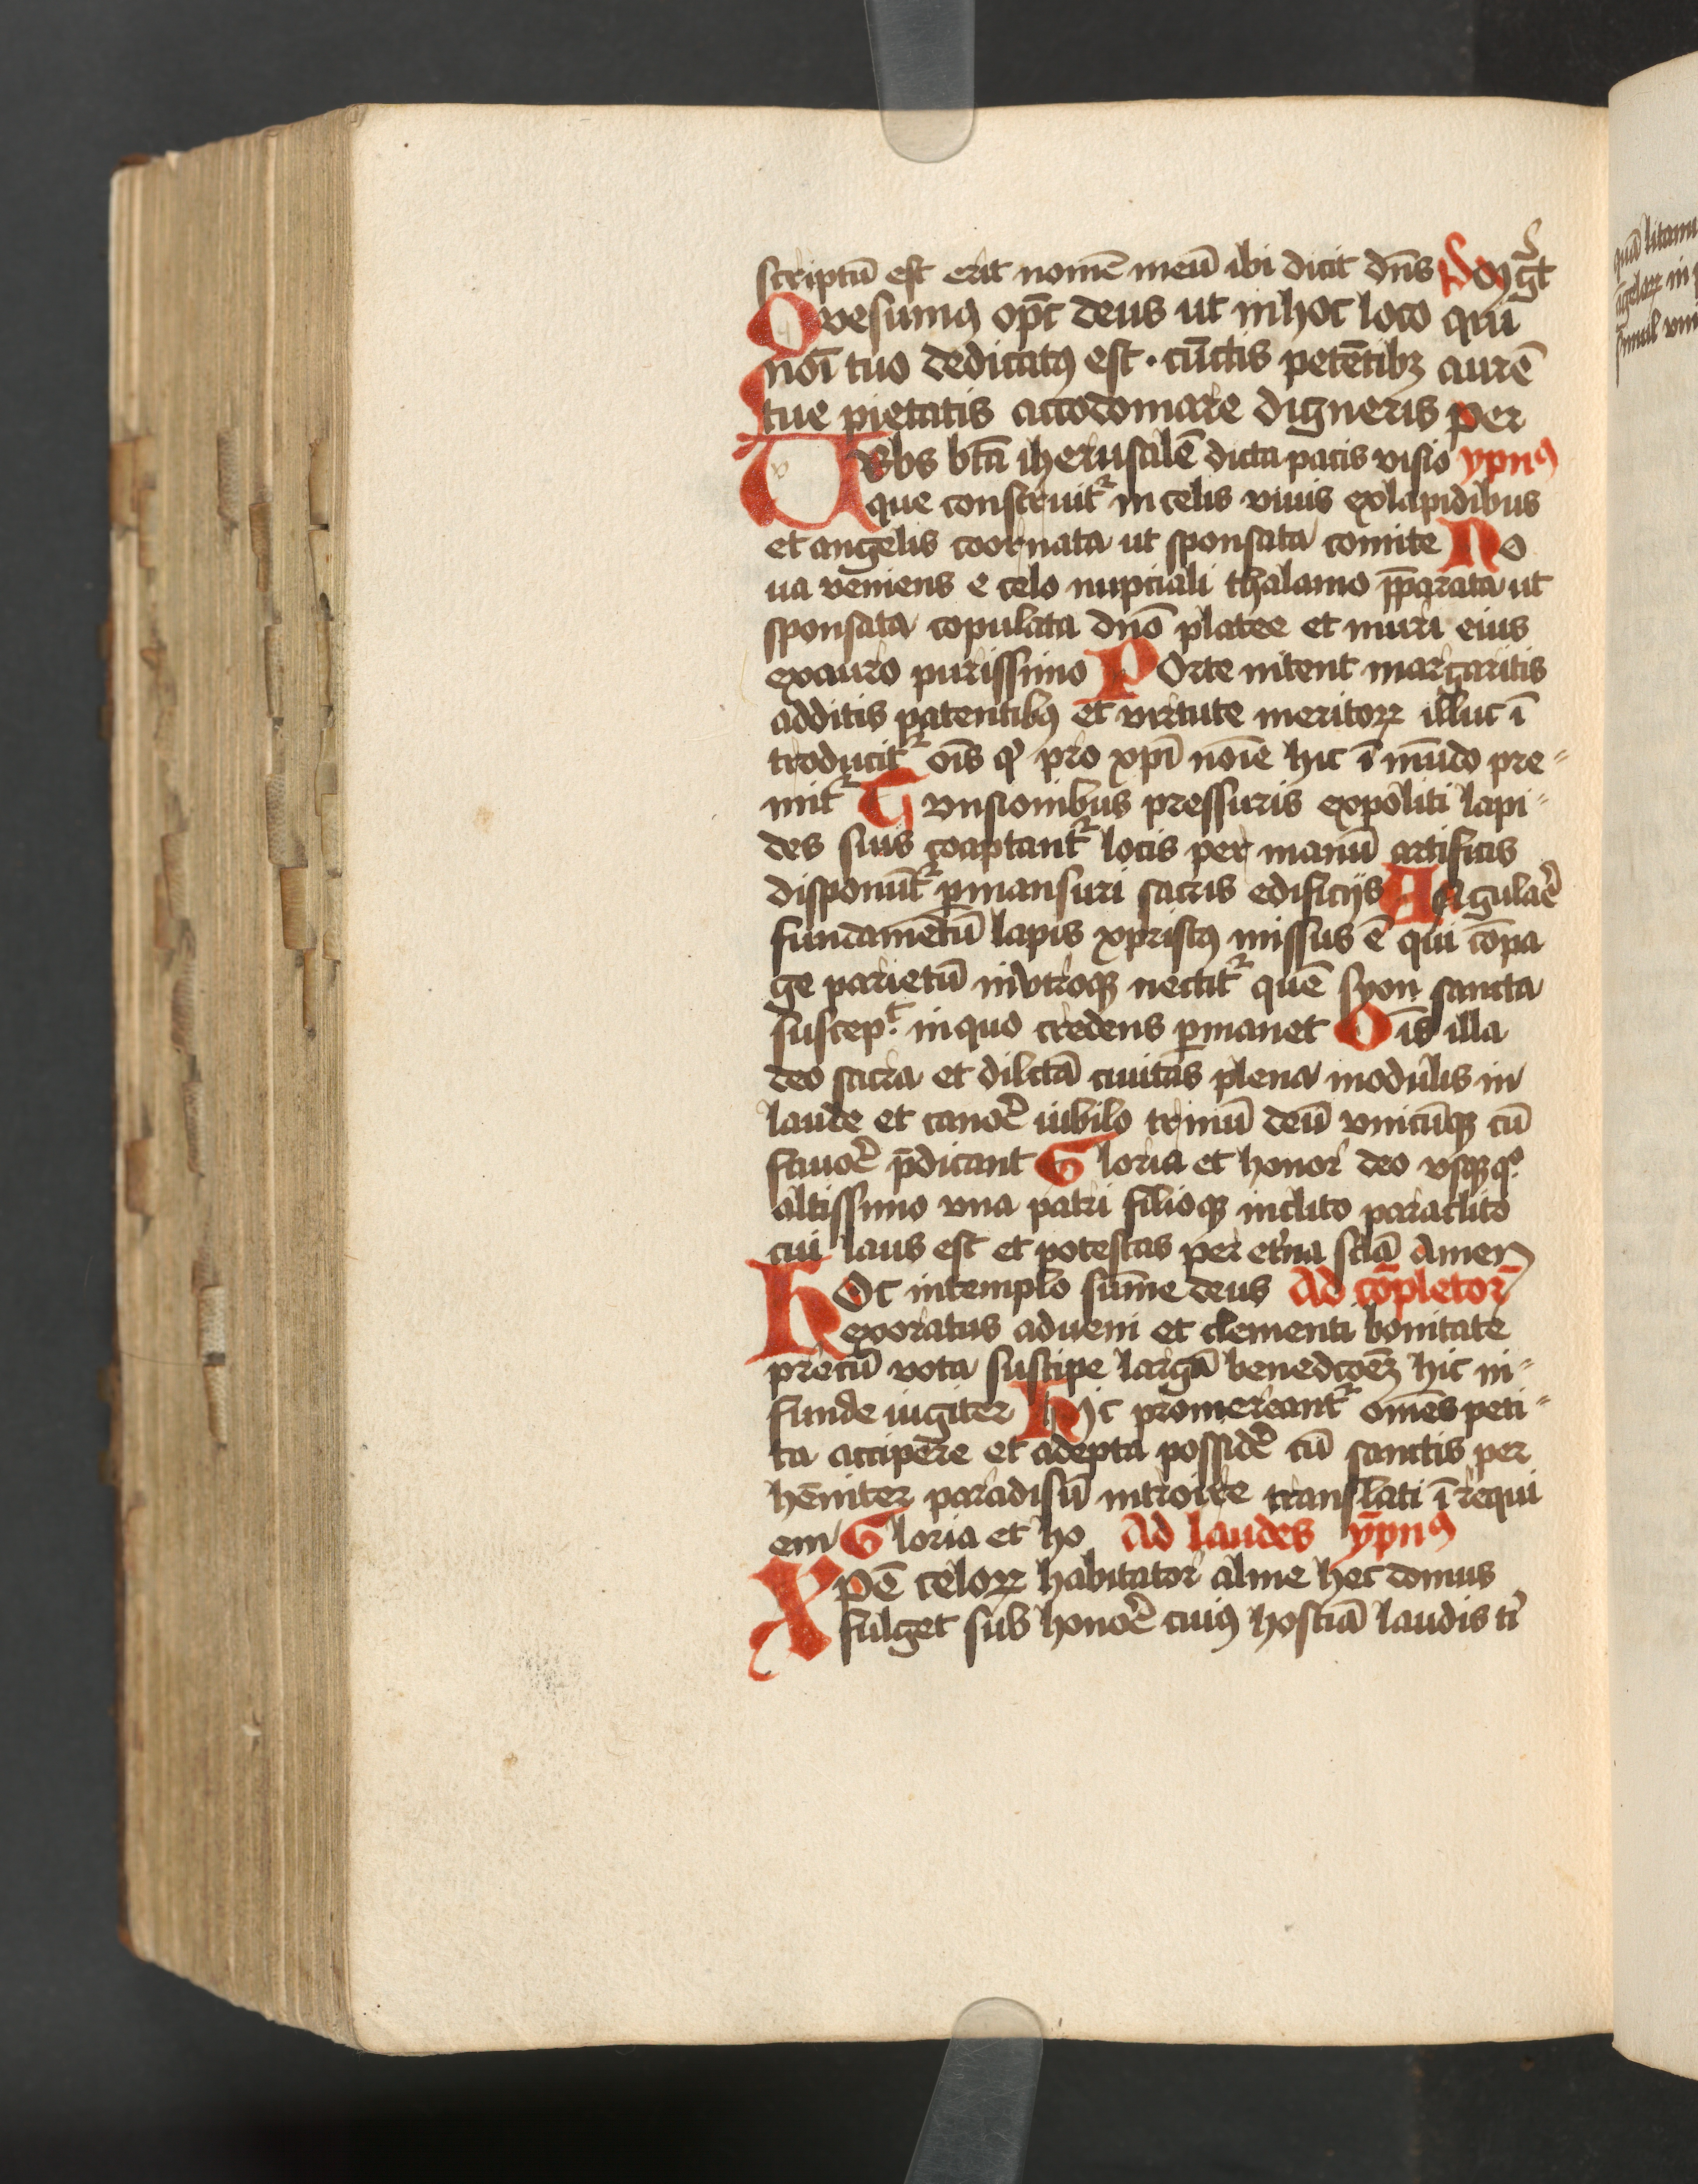 scriptū est erit nomē meū ibi dicit dn̄s
Qvesumꝯ opc̄ deus ut inhoc loco qui
noī tuo dedicatꝯ est · cūctis petētibꝫ aurē
tue pietatis accodomare digneris per
Vrbs bt̄a iherusalē dicta pacis visio ypnꝯ
que construit᷑ in celis viuis exlapidibus
et angelis coornata ut sponsata comite No
ua veniens e celo nupciali thalamo p̄parata ut
sponsata copulata dn̄o platee et muri eius
exauro purissimo Porte nitent margaritis
additis patentibꝯ et virtute meritoꝝ illuc ī
troducit᷑ oīs qͥ pro xpī noīe hic ī mūdo pre⸗
mit᷑ Tvnsionibus pressuris expoliti lapi⸗
des suis coaptant᷑ locis per manū artificis
disponūt᷑ ꝑmansuri sacris edificijs Angulaē
fundamētū lapis xpristꝯ missus ē qui cōpa
ge parietū invtroqꝫ nectit᷑ quē syon sancta
suscep.t inquo credens ꝑmanet Oīs illa
deo sacra et dilctā ciuitas plena modulis in
laude et canoē iubilo trinū deū vnicūqꝫ cū
fauoē p̄dicant Gloria et honor deo vsqꝫqͦ
altissimo vna patri filioqꝫ inclito paraclito
cui laus est et potestas per et̓na sc̄la Amen
Hoc intemplo sūme deus Ad cōpletor̄
exoratus adueni et clementi bonitate
precū vota suscipe largā benedcōeꝫ hic in⸗
funde iugiter Hic promereant᷑ om̄es peti⸗
ta accipere et adepta possidē cū sanctis per
hēniter paradisū introire translati ī requi
em Gloria et ho Ad laudes ȳpnꝯ
Xpē celoꝝ habitator alme hec domus
fulget sub honoē cuiꝯ hostiā laudis tͥ
quā litani
āgeloꝝ in
simul vni